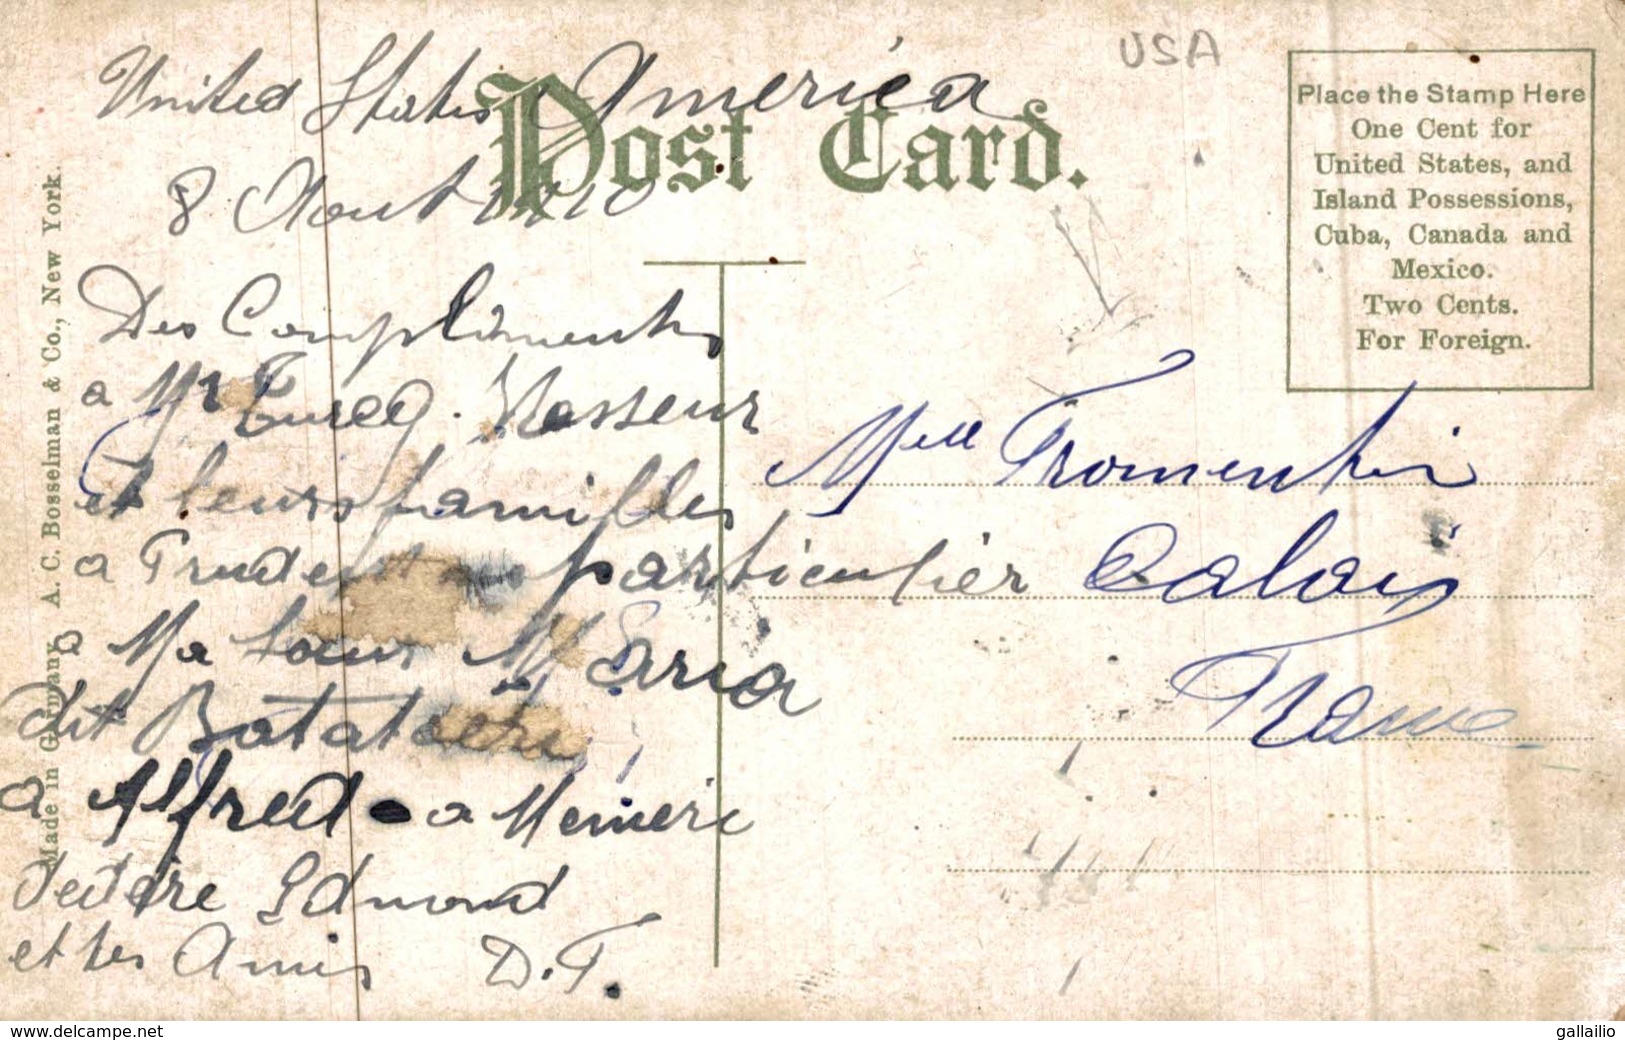 USA
United States America
Post Card.
8 Aout
Place the Stamp Here
One Cent for
United States, and
Island Possessions,
Cuba, Canada and
Mexico.
Two Cents.
For Foreign.
Des Compliments
a Mr Turcq. Masseur
et leurs familles
a particulier
a Ma Soeur Maria
dit
a Alfred a
Edmond
et tes Amis D.T.
Melle Fromentin
Calais
France
Made in Germany. A. C. Bosselman & Co., New York.
www.delcampe.net
gallailio